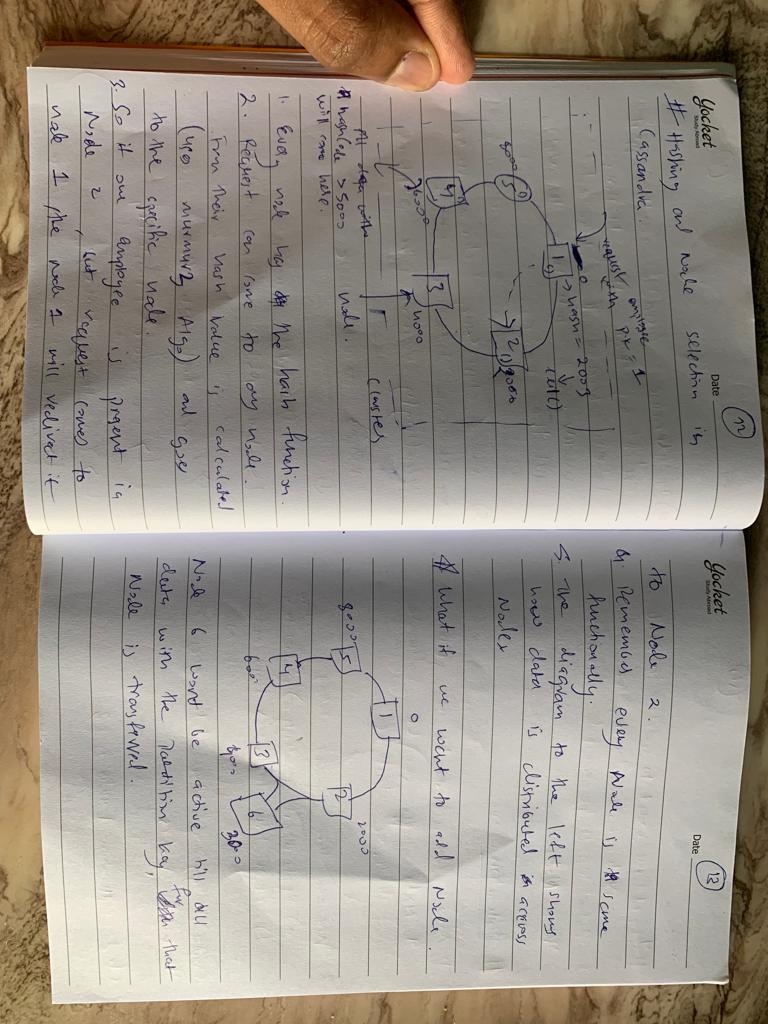 yocket
Study Abroad
Date
12
# Hashing and Node selection in
Cassandra.
request with employee
P.K = 1
0
1 → hash = 2003
2
2000
3
4000
4
6000
5
8000
cluster
All data with
hashCode > 5000
will come here.
node.
1. Every node has the hash function.
2. Request can come to any node.
From their hash value is calculated
(use murmur3 Algo) and goes
to the specific node.
3. So if our employee is present in
Node 2, but request comes to
node 1, the node 1 will redirect it
yocket
Study Abroad
Date
13
to Node 2.
4. Remember every Node is same
functionally.
5. The diagram to the left shows
how data is distributed across
Nodes
# What if we want to add Node.
0
1
2000
2
8000
5
4
6000
3
4000
6
3000
Node 6 wont be active till all
data with the Partition key, for that
Node is transferred.